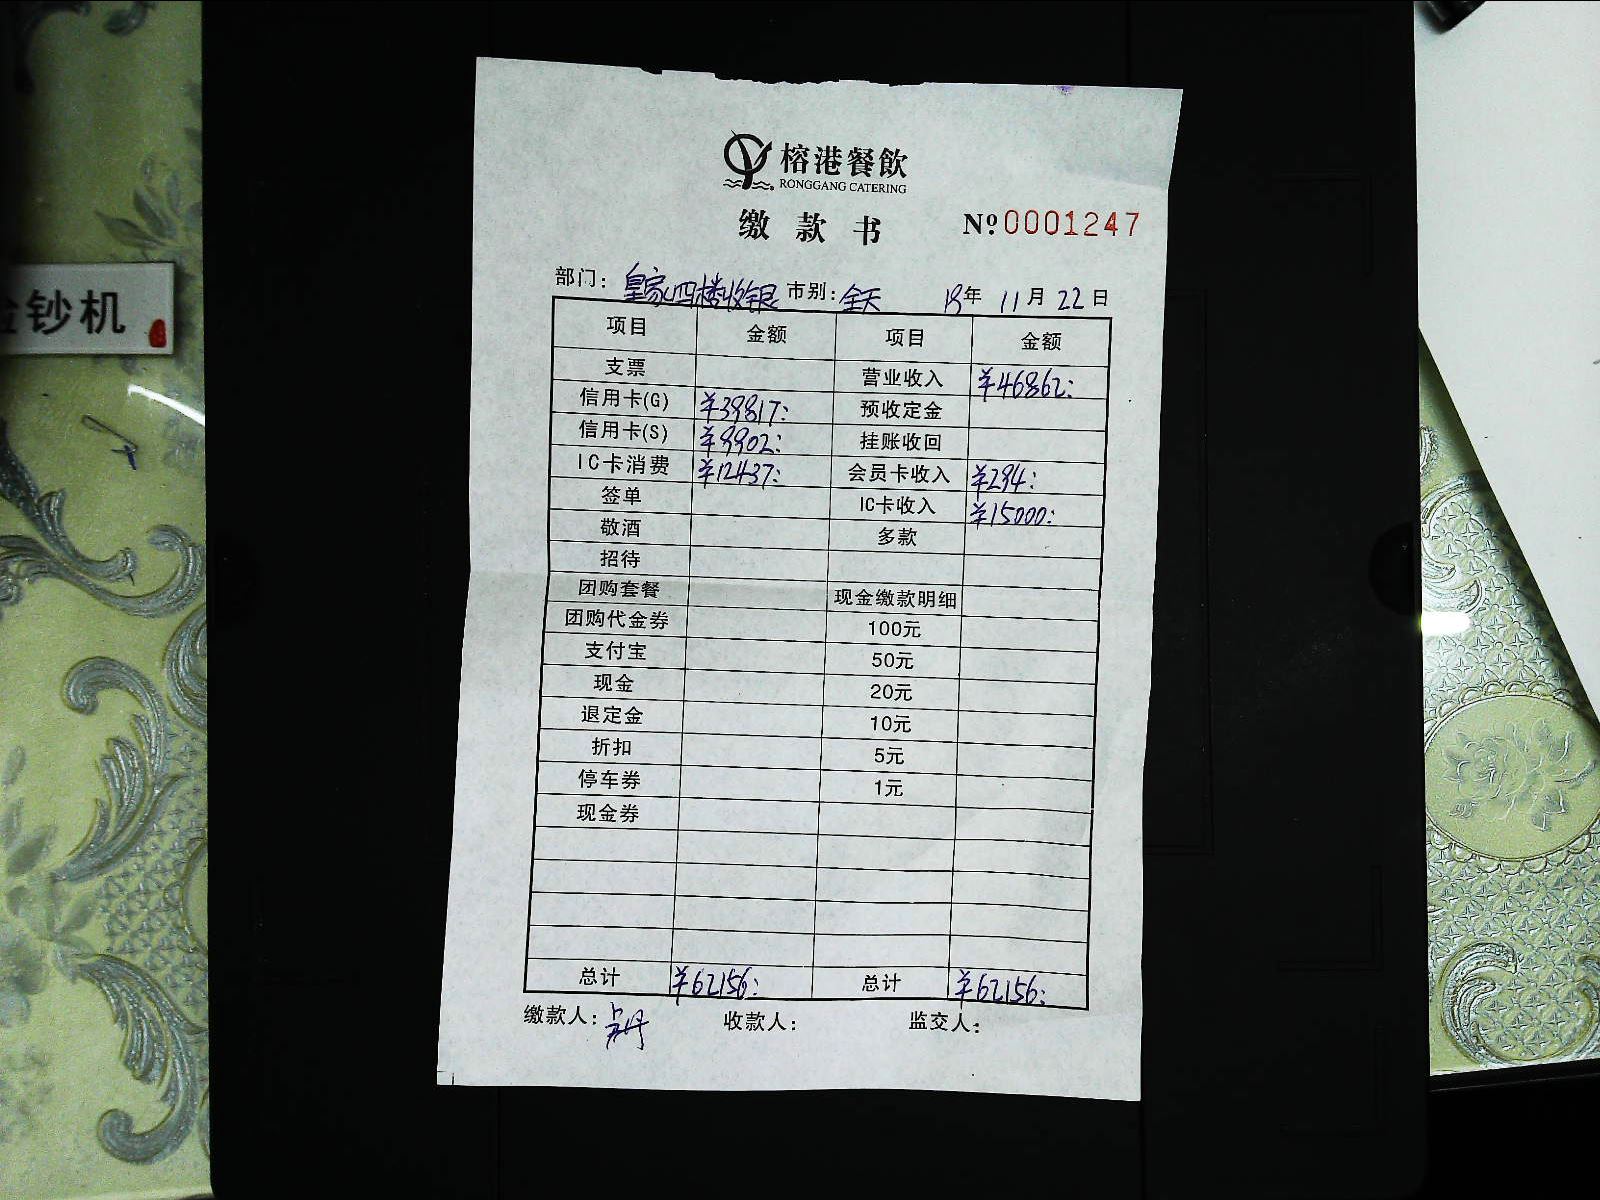 钞机
榕港餐飲
RONGGANG CATERING
缴款书 Nº 0001247
部门: 皇家四楼收银 市别: 全天 年 11月 22日
项目 金额 项目 金额
支票 营业收入 ¥46862:
信用卡(G) ¥39817: 预收定金
信用卡(S) ¥9902: 挂账收回
IC卡消费 ¥12437: 会员卡收入 ¥294:
签单 IC卡收入 ¥15000:
敬酒 多款
招待
团购套餐 现金缴款明细
团购代金券 100元
支付宝 50元
现金 20元
退定金 10元
折扣 5元
停车券 1元
现金券
总计 ¥62156: 总计 ¥62156:
缴款人: 收款人: 监交人: